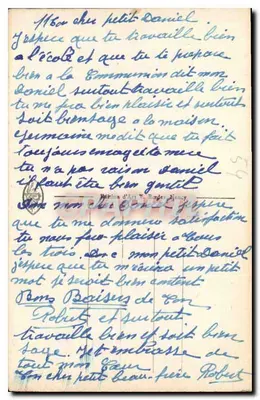 Mon cher petit Daniel.
J'espère que tu travaille bien
a l'école et que tu te prepare
bien a la Communion dit mon
Daniel surtout travaille bien
tu me fra bien plaisir et surtout
soit bien sage a la maison.
Germaine me dit que tu fait
toujours enragé ta mere
tu n'a pas raison Daniel
il faut être bien gentil
que tu me donnera satisfaction
tu nous fra plaisir a tous
les trois. Donc mon petit Daniel
j'espère que tu m'écrira un petit
mot je serait bien content
Bons Baisers de ton
Robert et surtout
travaille bien et soit bien
sage. Je t'embrasse de
tout mon cœur
Ton cher petit beau-frère Robert